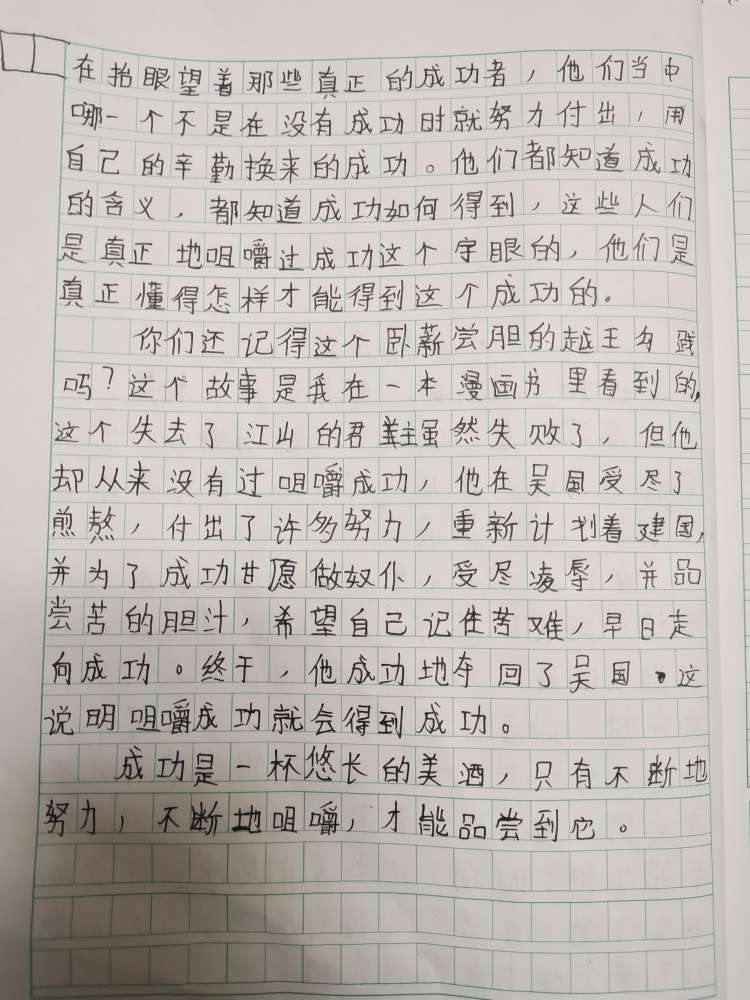 在抬眼望着那些真正的成功者，他们当中
哪一个不是在没有成功时就努力付出，用
自己的辛勤换来的成功。他们都知道成功
的含义，都知道成功如何得到，这些人们
是真正地咀嚼过成功这个字眼的，他们是
真正懂得怎样才能得到这个成功的。
你们还记得这个卧薪尝胆的越王勾践
吗？这个故事是我在一本漫画书里看到的，
这个失去了江山的君主虽然失败了，但他
却从来没有过咀嚼成功，他在吴国受尽了
煎熬，付出了许多努力，重新计划着建国，
并为了成功甘愿做奴仆，受尽凌辱，并品
尝苦的胆汁，希望自己记住苦难，早日走
向成功。终于，他成功地夺回了吴国。这
说明咀嚼成功就会得到成功。
成功是一杯悠长的美酒，只有不断地
努力，不断地咀嚼，才能品尝到它。